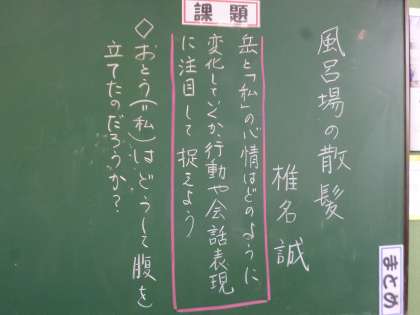 風呂場の散髪
椎名誠
課題
岳と「私」の心情はどのように
変化していくか、行動や会話表現
に注目して捉えよう
◇おとう(=私)はどうして腹を
立てたのだろうか?
まとめ